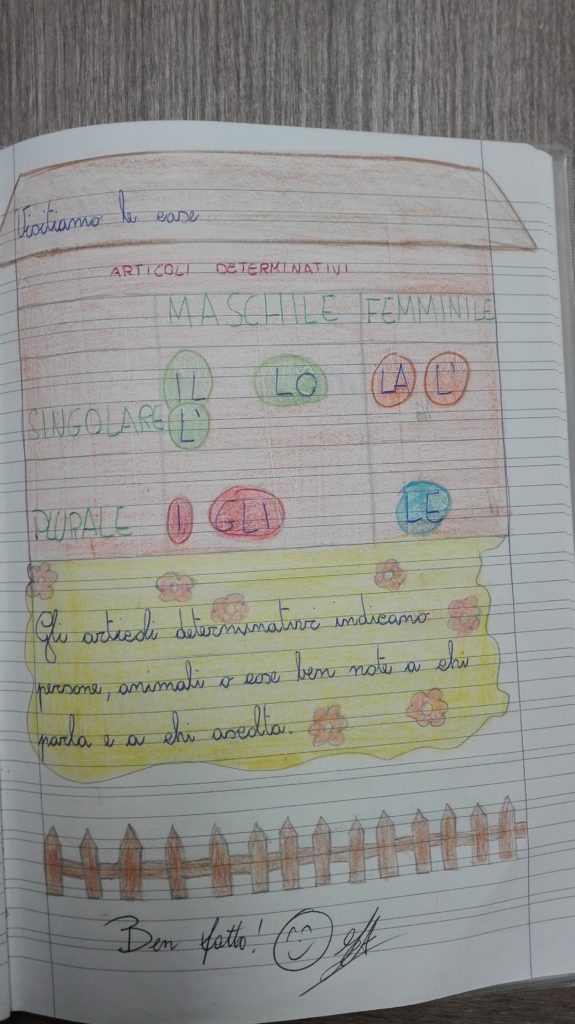 Visitiamo le case
ARTICOLI DETERMINATIVI
MASCHILE FEMMINILE
IL LO LA L'
SINGOLARE L'
PLURALE I GLI LE
Gli articoli determinativi indicano
persone, animali o cose ben note a chi
parla e a chi ascolta.
Ben fatto!